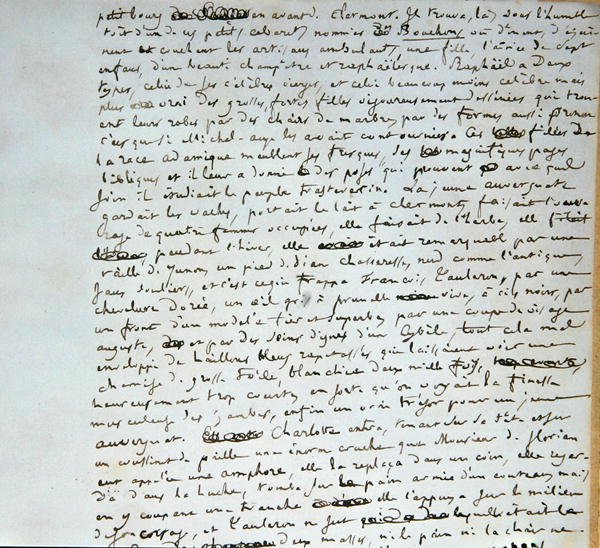 petit bourg en avant de Clermont. Il trouva, là, sous l'humble
toit d'un de ces petits cabarets nommés des Bouchons où dînent, déjeu-
nent et couchent les artisans ambulants, une fille, l'aînée de sept
enfans, d'un beauté champêtre et raphaélesque. Raphaël a Deux
types, celui de ses célèbres vierges, et celui beaucoup moins célèbre mais
plus vrai des grosses, fortes filles vigoureusement dessinées qui
ent leurs robes par des chairs de marbre, par des formes aussi
c'est que si Michel-ange les avait contournées. Ces filles De
la race adamique meublent ses fresques, ses magnifiques pages
bibliques et il leur a donné des poses qui prouvent avec quel
soin il étudiait le peuple trasteverin. La jeune auvergnate
gardait les vaches, portait le lait à Clermont, faisait l'ouv
rage de quatre femmes occupées, elle faisait de l'herbe, elle
pendant l'hiver, elle était remarquable par une
taille de Junon, un pied de Diane chasseresse, nud comme l'antique,
sans souliers, et c'est ce qui frappa François Tauleron, par une
chevelure Dorée, un œil gris à prunelle vive, à cils noirs, par
un front d'un modèle fier et superbe, par une coupe de visage
auguste, et par des soins dignes d'un Cybèle, tout cela mal
enveloppé de haillons bleus rapetassés, qui laissaient voir une
chemise de grosse toile, blanchie deux mille fois,
heureusement trop courte, en sorte qu'on voyait la finesse
des jambes, enfin un vrai trésor pour un jeune
auvergnat. Charlotte entra, tenant sur sa tête et sur
un coussinet de paille une énorme cruche que Monsieur de Florian
eut appelée une amphore, elle la replaça dans un coin, elle regar-
da dans la huche, tomba sur le pain armée d'un couteau, mais
en y coupant une tranche elle l'appuya sur le milieu
de son corsage, et Tauleron ne sut laquelle était la
deux masses, ni le pain ni la chair ne